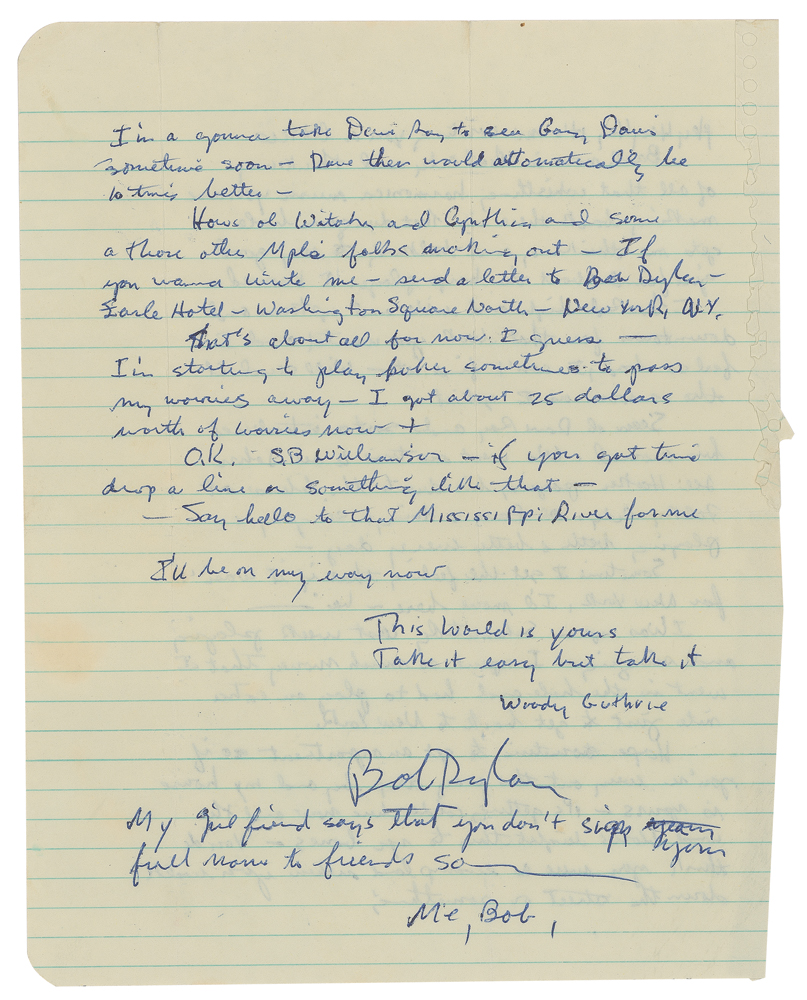 I'm a gonna take Dave Ray to see Gary Davis
sometime soon – Dave then would automatically be
10 times better –
Hows ol Witcher and Cynthia and some
a those other Mpls folks making out – If
you wanna write me – send a letter to Bob Dylan –
Earle Hotel – Washington Square North – New York, N.Y.
That's about all for now. I guess —
I'm starting to play poker sometimes to pass
my worries away – I got about 25 dollars
worth of worries now +
O.K. S.B Williamson – if you got time
drop a line or something like that –
– Say hello to that Mississippi River for me
I'll be on my way now
This World is yours
Take it easy but take it
Woody Guthrie
Bob Dylan
My girl friend says that you don't sign your
full name to friends so
Me, Bob,